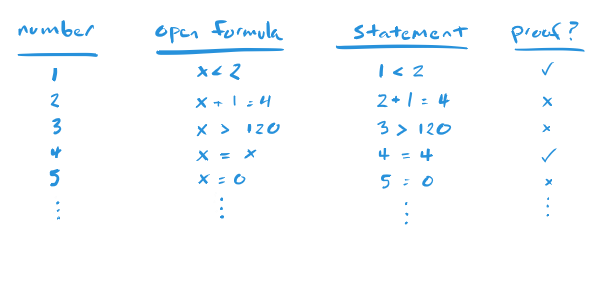 number open formula statement proof?
1 x < 2 1 < 2 ✓
2 x + 1 = 4 2 + 1 = 4 ×
3 x > 120 3 > 120 ×
4 x = x 4 = 4 ✓
5 x = 0 5 = 0 ×
⋮ ⋮ ⋮ ⋮